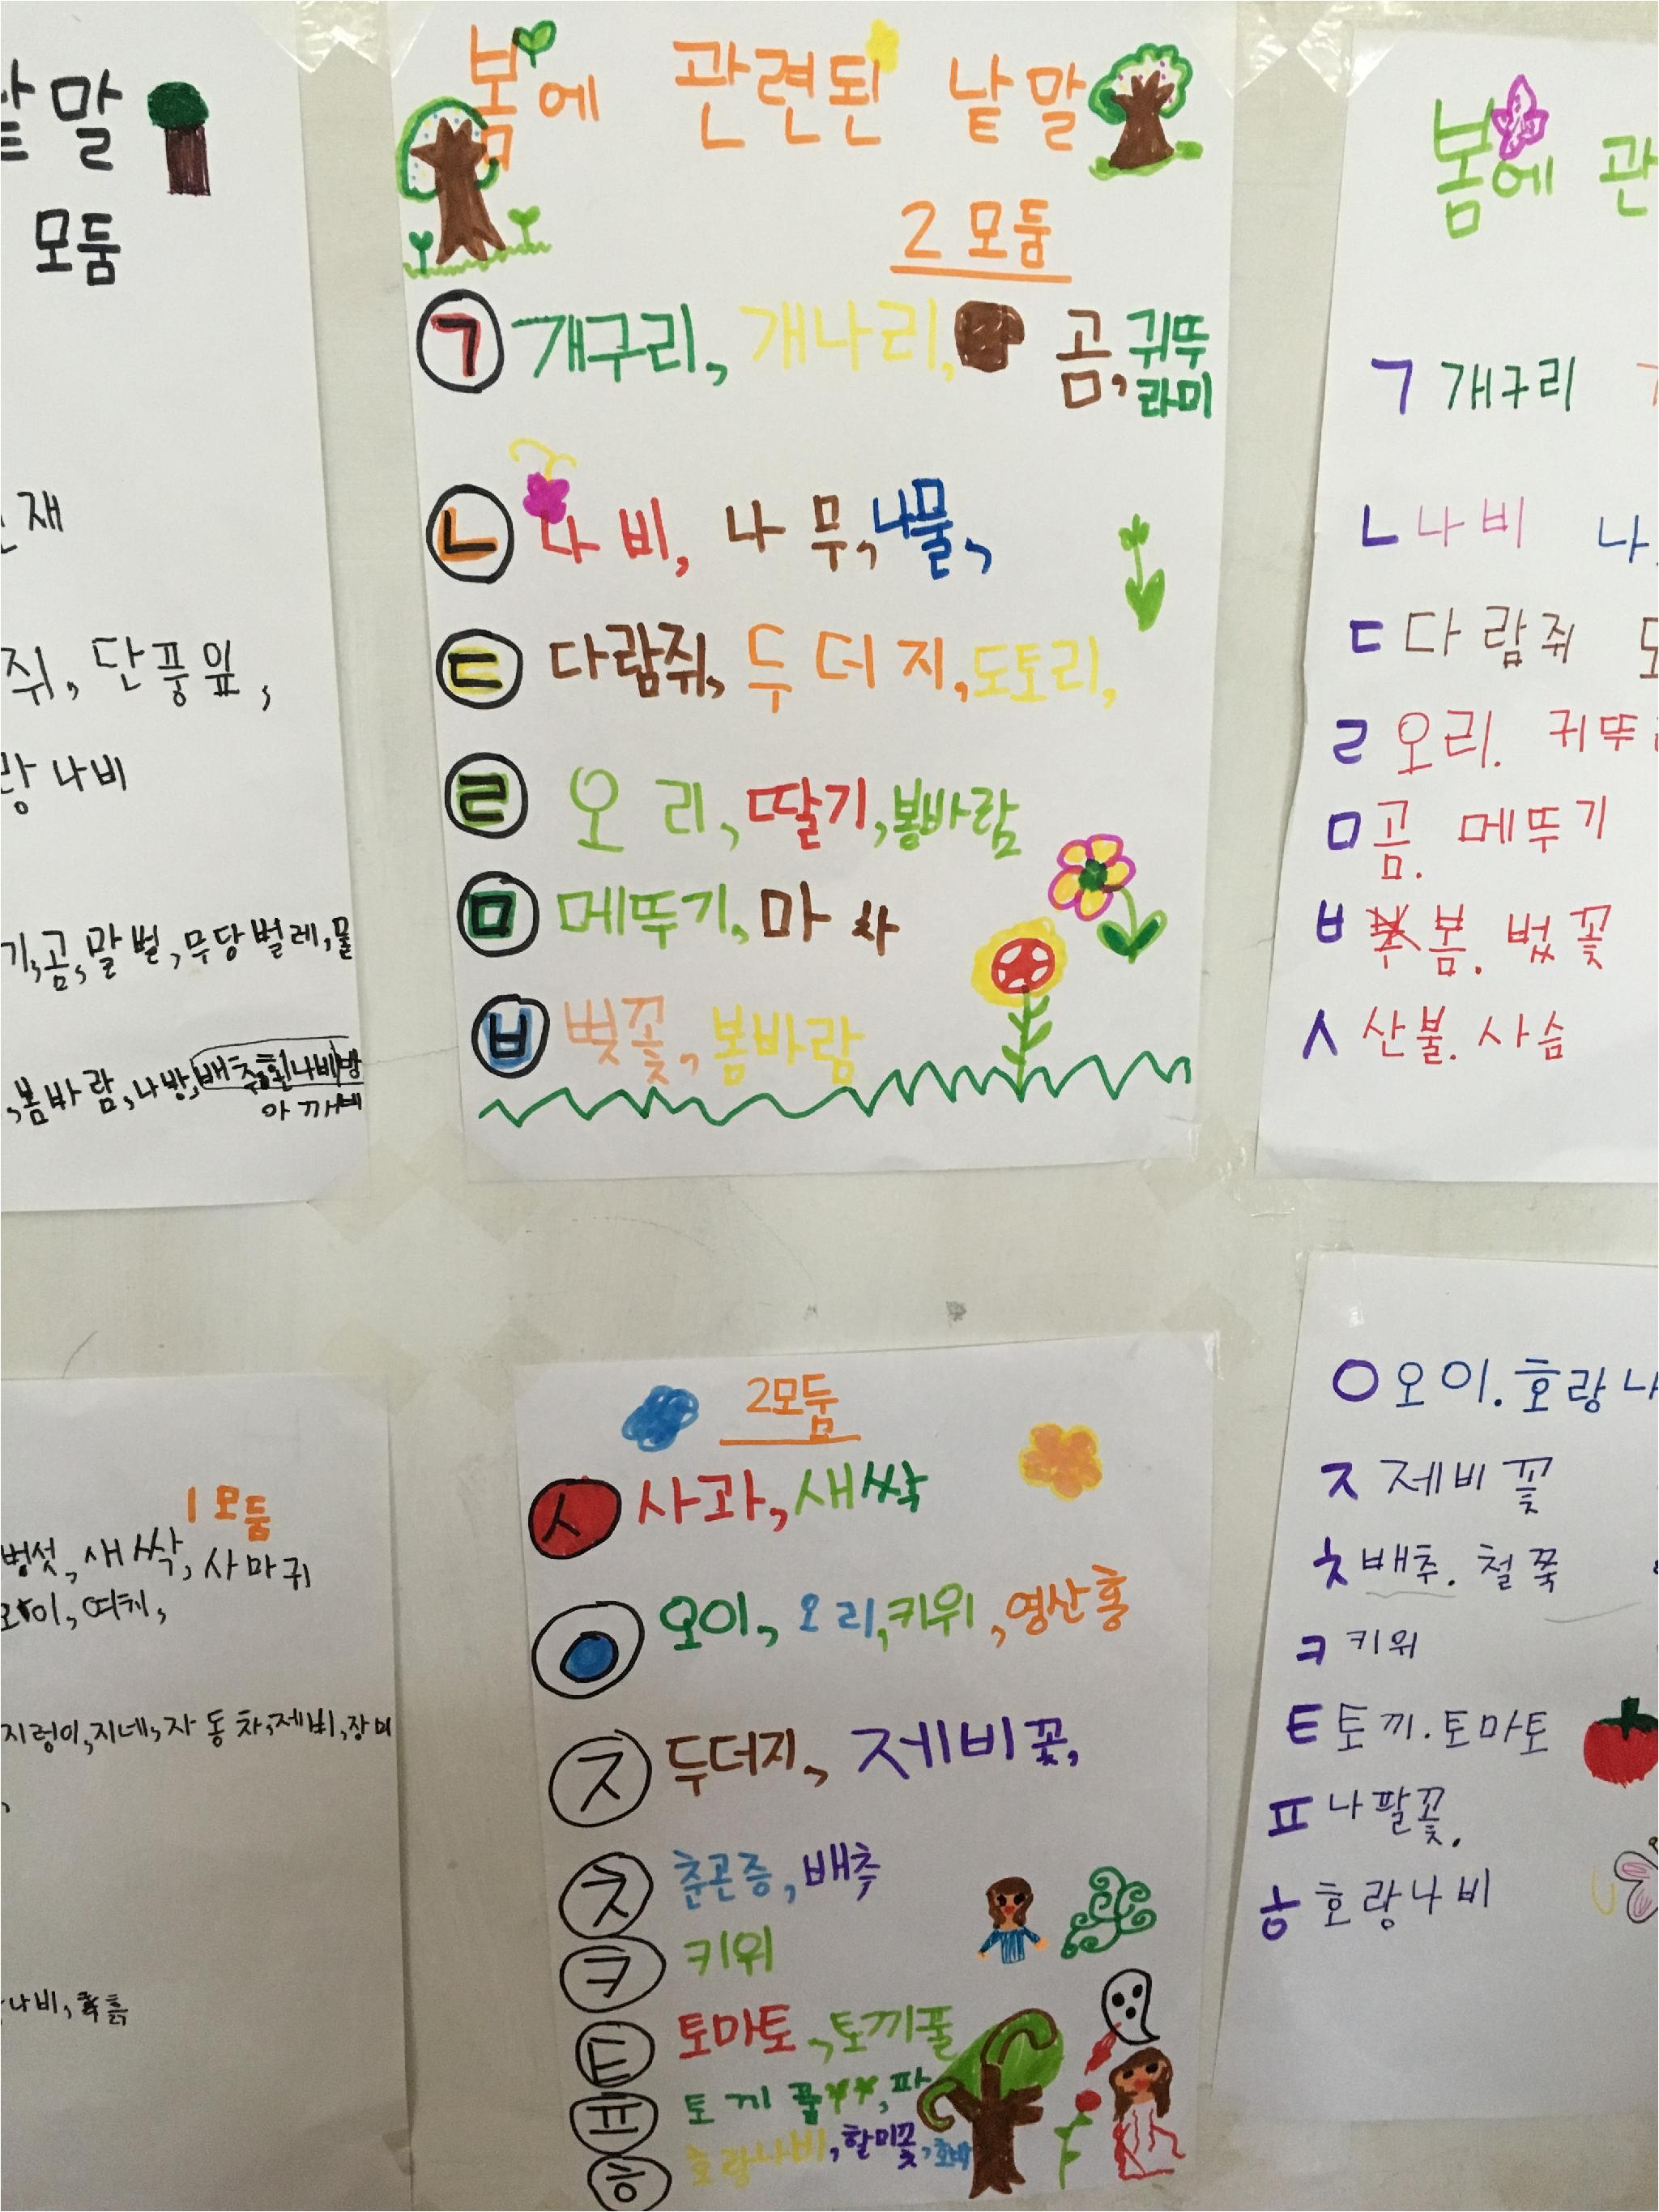 낱말
모둠
재
쥐, 단풍잎,
랑나비
기, 곰, 말벌, 무당벌레, 물
, 봄바람, 나방, 배추흰나비방
아깨비
봄에 관련된 낱말
2 모둠
ㄱ 개구리, 개나리, 곰, 귀뚜
라미
ㄴ 나비, 나무, 나물,
ㄷ 다람쥐, 두더지, 도토리,
ㄹ 오리, 딸기, 봄바람
ㅁ 메뚜기, 마차
ㅂ 벚꽃, 봄바람
봄에 관
ㄱ 개구리
ㄴ 나비 나
ㄷ 다람쥐
ㄹ 오리. 귀뚜
ㅁ 곰. 메뚜기
ㅂ 봄. 벘꽃
ㅅ 산불. 사슴
1 모둠
범섯, 새싹, 사마귀
오이, 여치,
지렁이, 지네, 자동차, 제비, 장미
나비, 흙
2모둠
ㅅ 사과, 새싹
ㅇ 오이, 오리, 키위, 영산홍
ㅈ 두더지, 제비꽃,
ㅊ 춘곤증, 배추
ㅋ 키위
ㅌ 토마토, 토끼풀
ㅍ 토끼풀, 파
ㅎ 호랑나비, 할미꽃, 호박
ㅇ 오이. 호랑나
ㅈ 제비꽃
ㅊ 배추. 철쭉
ㅋ 키위
ㅌ 토끼. 토마토
ㅍ 나팔꽃.
ㅎ 호랑나비